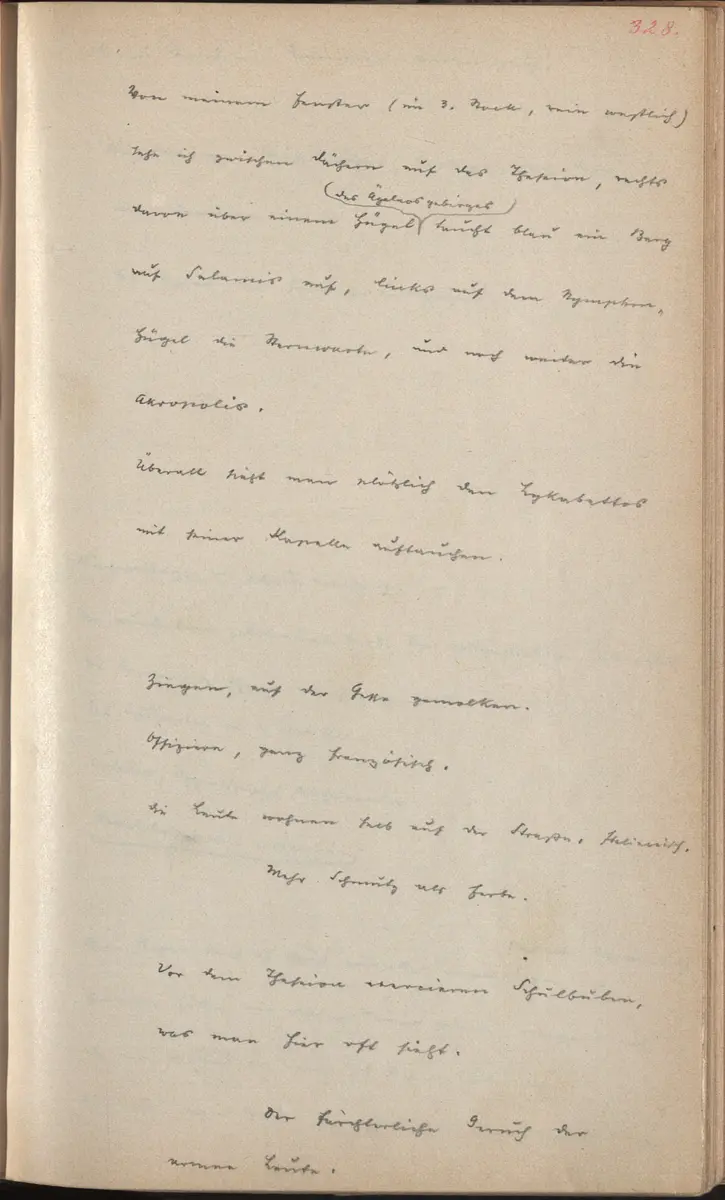 328.
Von meinem Fenster (im 3. Stock, rein westlich)
sehe ich zwischen Dächern auf das Theseion, rechts
(des Ägaleosgebirges)
davon über einem Hügel taucht blau ein Berg
auf Salamis auf, links auf dem Nymphen-
hügel die Sternwarte, und noch weiter die
Akropolis.
Überall sieht man plötzlich den Lykabettos
mit seiner Kapelle auftauchen.
Ziegen, auf der Gasse gemolken.
Offiziere, ganz französisch.
Die Leute wohnen halb auf der Straße. Italienisch.
Mehr Schmutz als Farbe.
Vor dem Theseion exercieren Schulbuben,
was man hier oft sieht.
Der fürchterliche Geruch der
armen Leute.